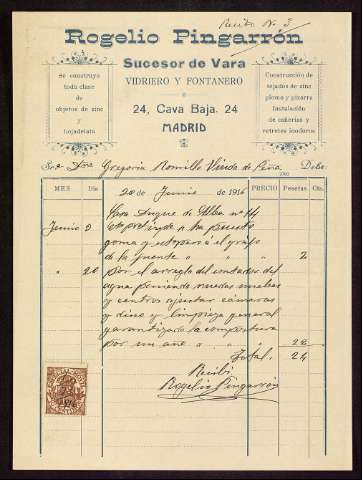 Recibo N. 3
Rogelio Pingarrón
Sucesor de Vara
VIDRIERO Y FONTANERO
24, Cava Baja, 24
MADRID
Se construye
toda clase
de
objetos de zinc
y hojadelata
Construcción de
tejados de zinc
plomo y pizarra
Instalación
de cañerías y
retretes inodoros
Sra. Dña Gregoria Romillo Viuda de Peña Debe:
MES Día 20 de Junio de 1916 PRECIO Pesetas Cts.
Casa Duque de Alba nº 14
Junio 9 ha puesto
goma y estopero á el grifo
de la fuente " " " 2
" 20 por el arreglo del contador del
agua poniendo ruedas nuebas
y centros ajustar cámaras
y disco y limpieza general
garantizada la compostura
por un año " " 22
Total. 24
Recibí
Rogelio Pingarrón